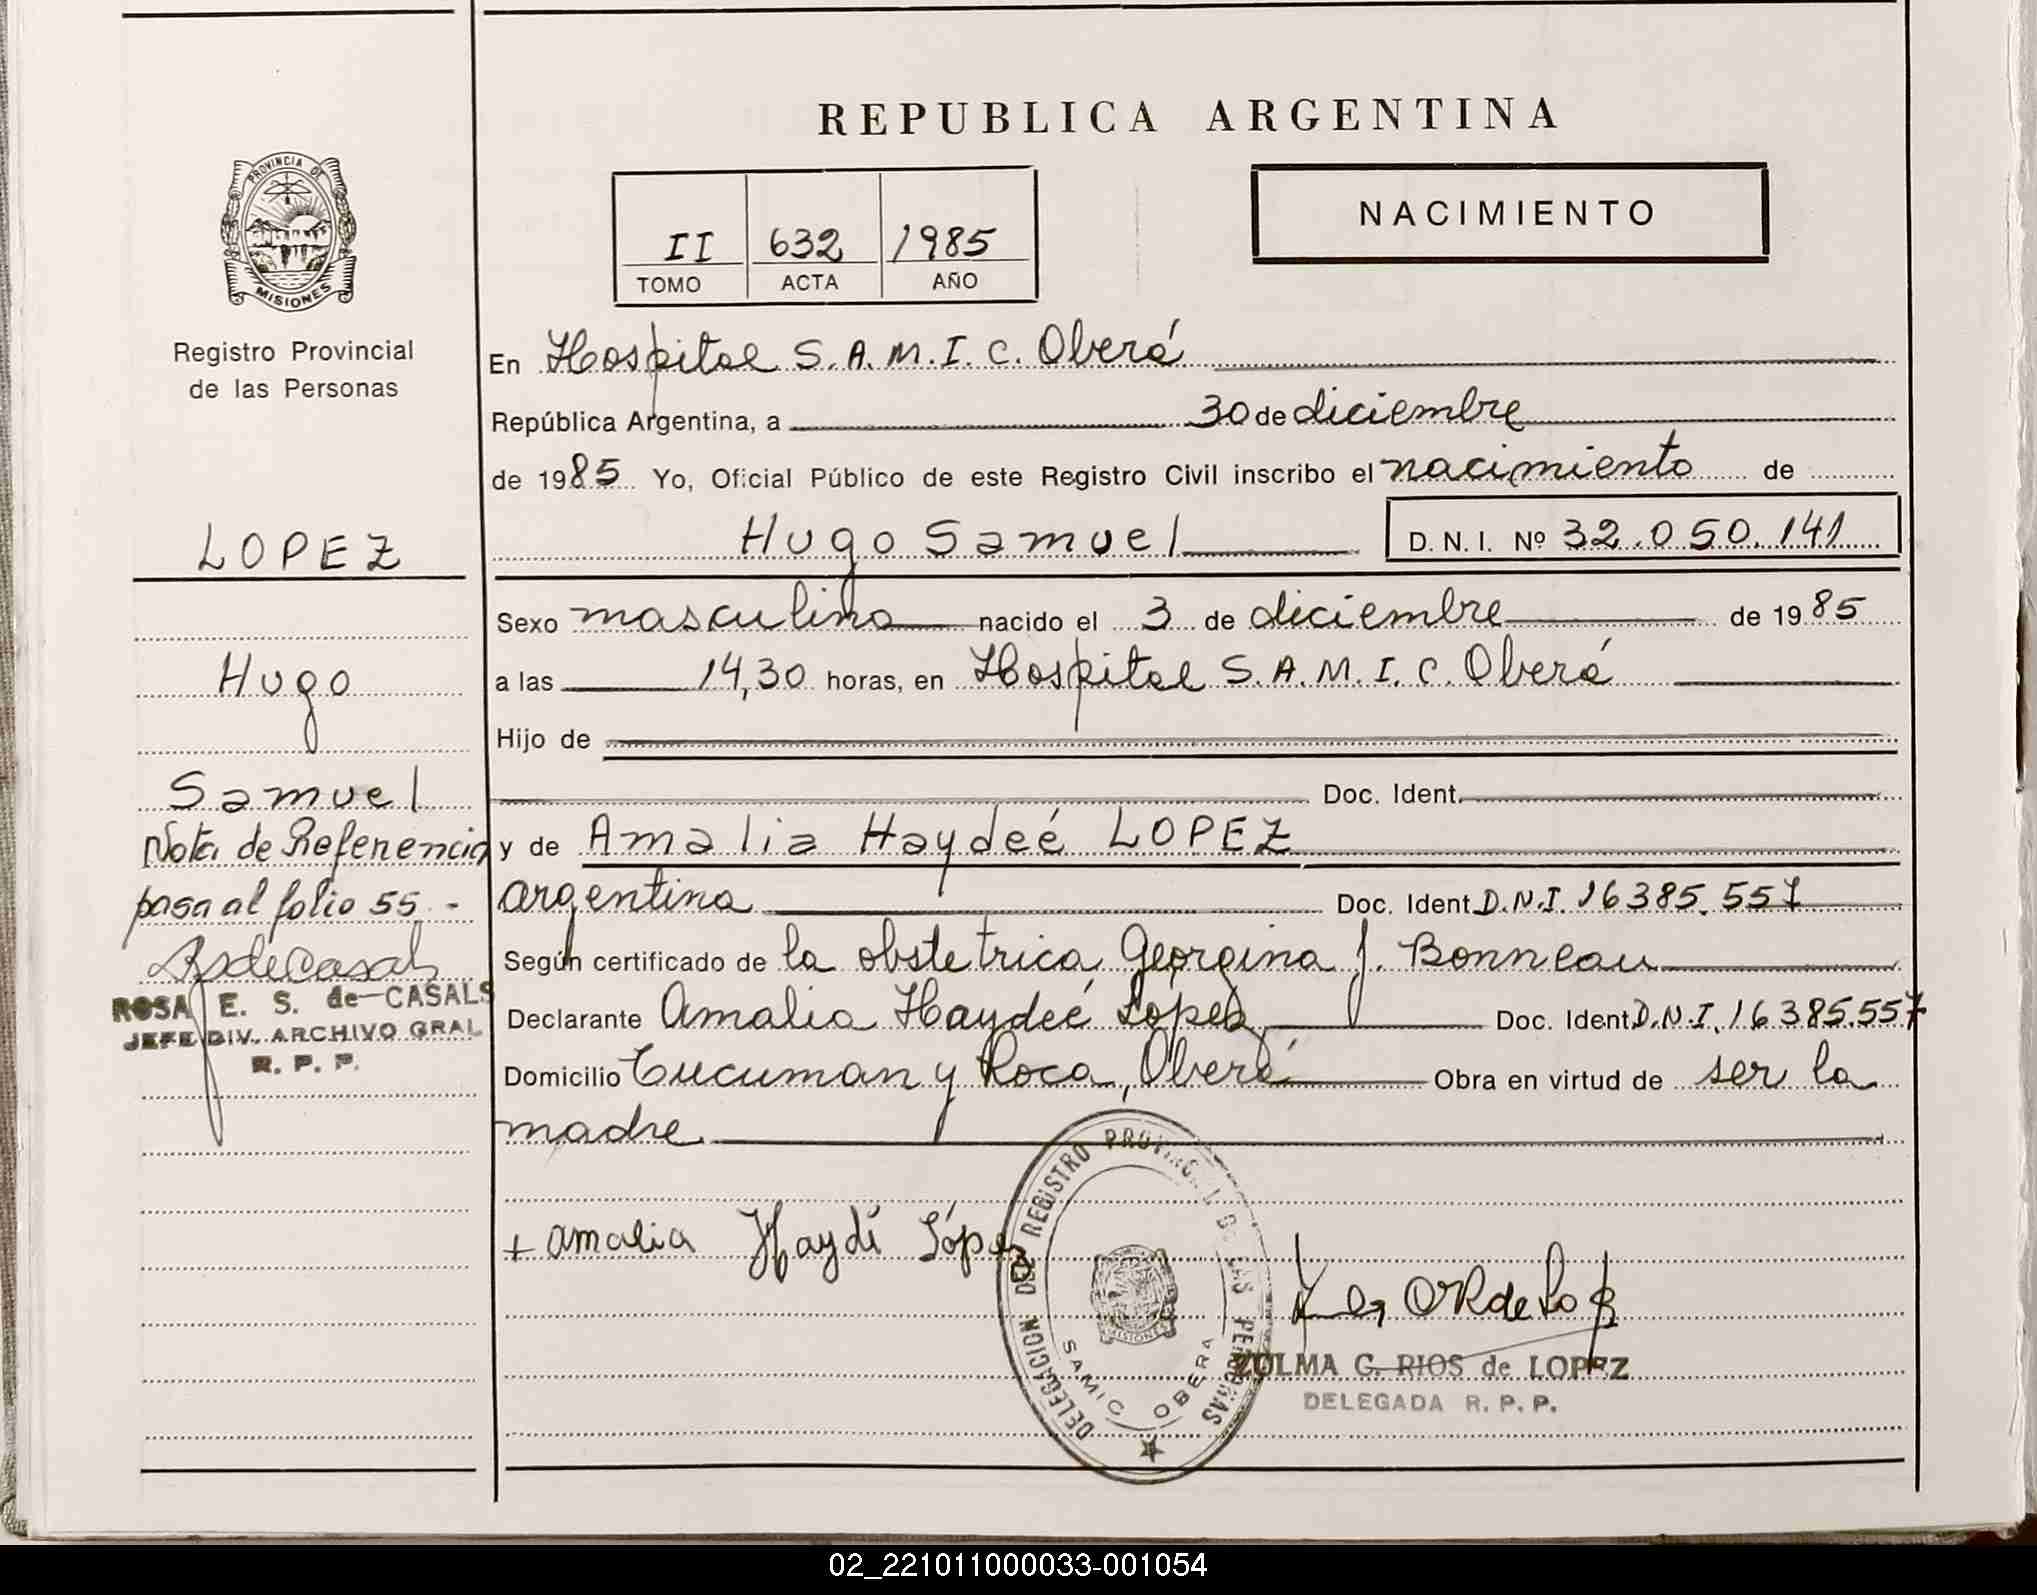 REPUBLICA ARGENTINA
PROVINCIA DE
MISIONES
Registro Provincial
de las Personas
II 632 1985
TOMO ACTA AÑO
NACIMIENTO
En Hospital S.A.M.I.C. Oberá
República Argentina, a 30 de diciembre
de 1985 Yo, Oficial Público de este Registro Civil inscribo el nacimiento de
LOPEZ
Hugo Samuel D.N.I. Nº 32.050.141
Sexo masculino nacido el 3 de diciembre de 1985
Hugo
a las 14,30 horas, en Hospital S.A.M.I.C. Oberá
Hijo de
Samuel
Doc. Ident.
Nota de Referencia
y de Amalia Haydeé LOPEZ
pasa al folio 55 -
argentina Doc. Ident D.N.I. 16385.557
Según certificado de la obstetrica Georgina J. Bonneau
ROSA E. S. de CASALS
JEFE DIV. ARCHIVO GRAL
R. P. P.
Declarante Amalia Haydeé López Doc. Ident D.N.I. 16385.557
Domicilio Tucuman y Roca, Oberá Obra en virtud de ser la
madre
+ amalia Haydé López
DELEGACION DEL REGISTRO PROVINCIAL DE LAS PERSONAS
MISIONES
SAMIC OBERA
ZULMA G. RIOS de LOPEZ
DELEGADA R. P. P.
02_221011000033-001054